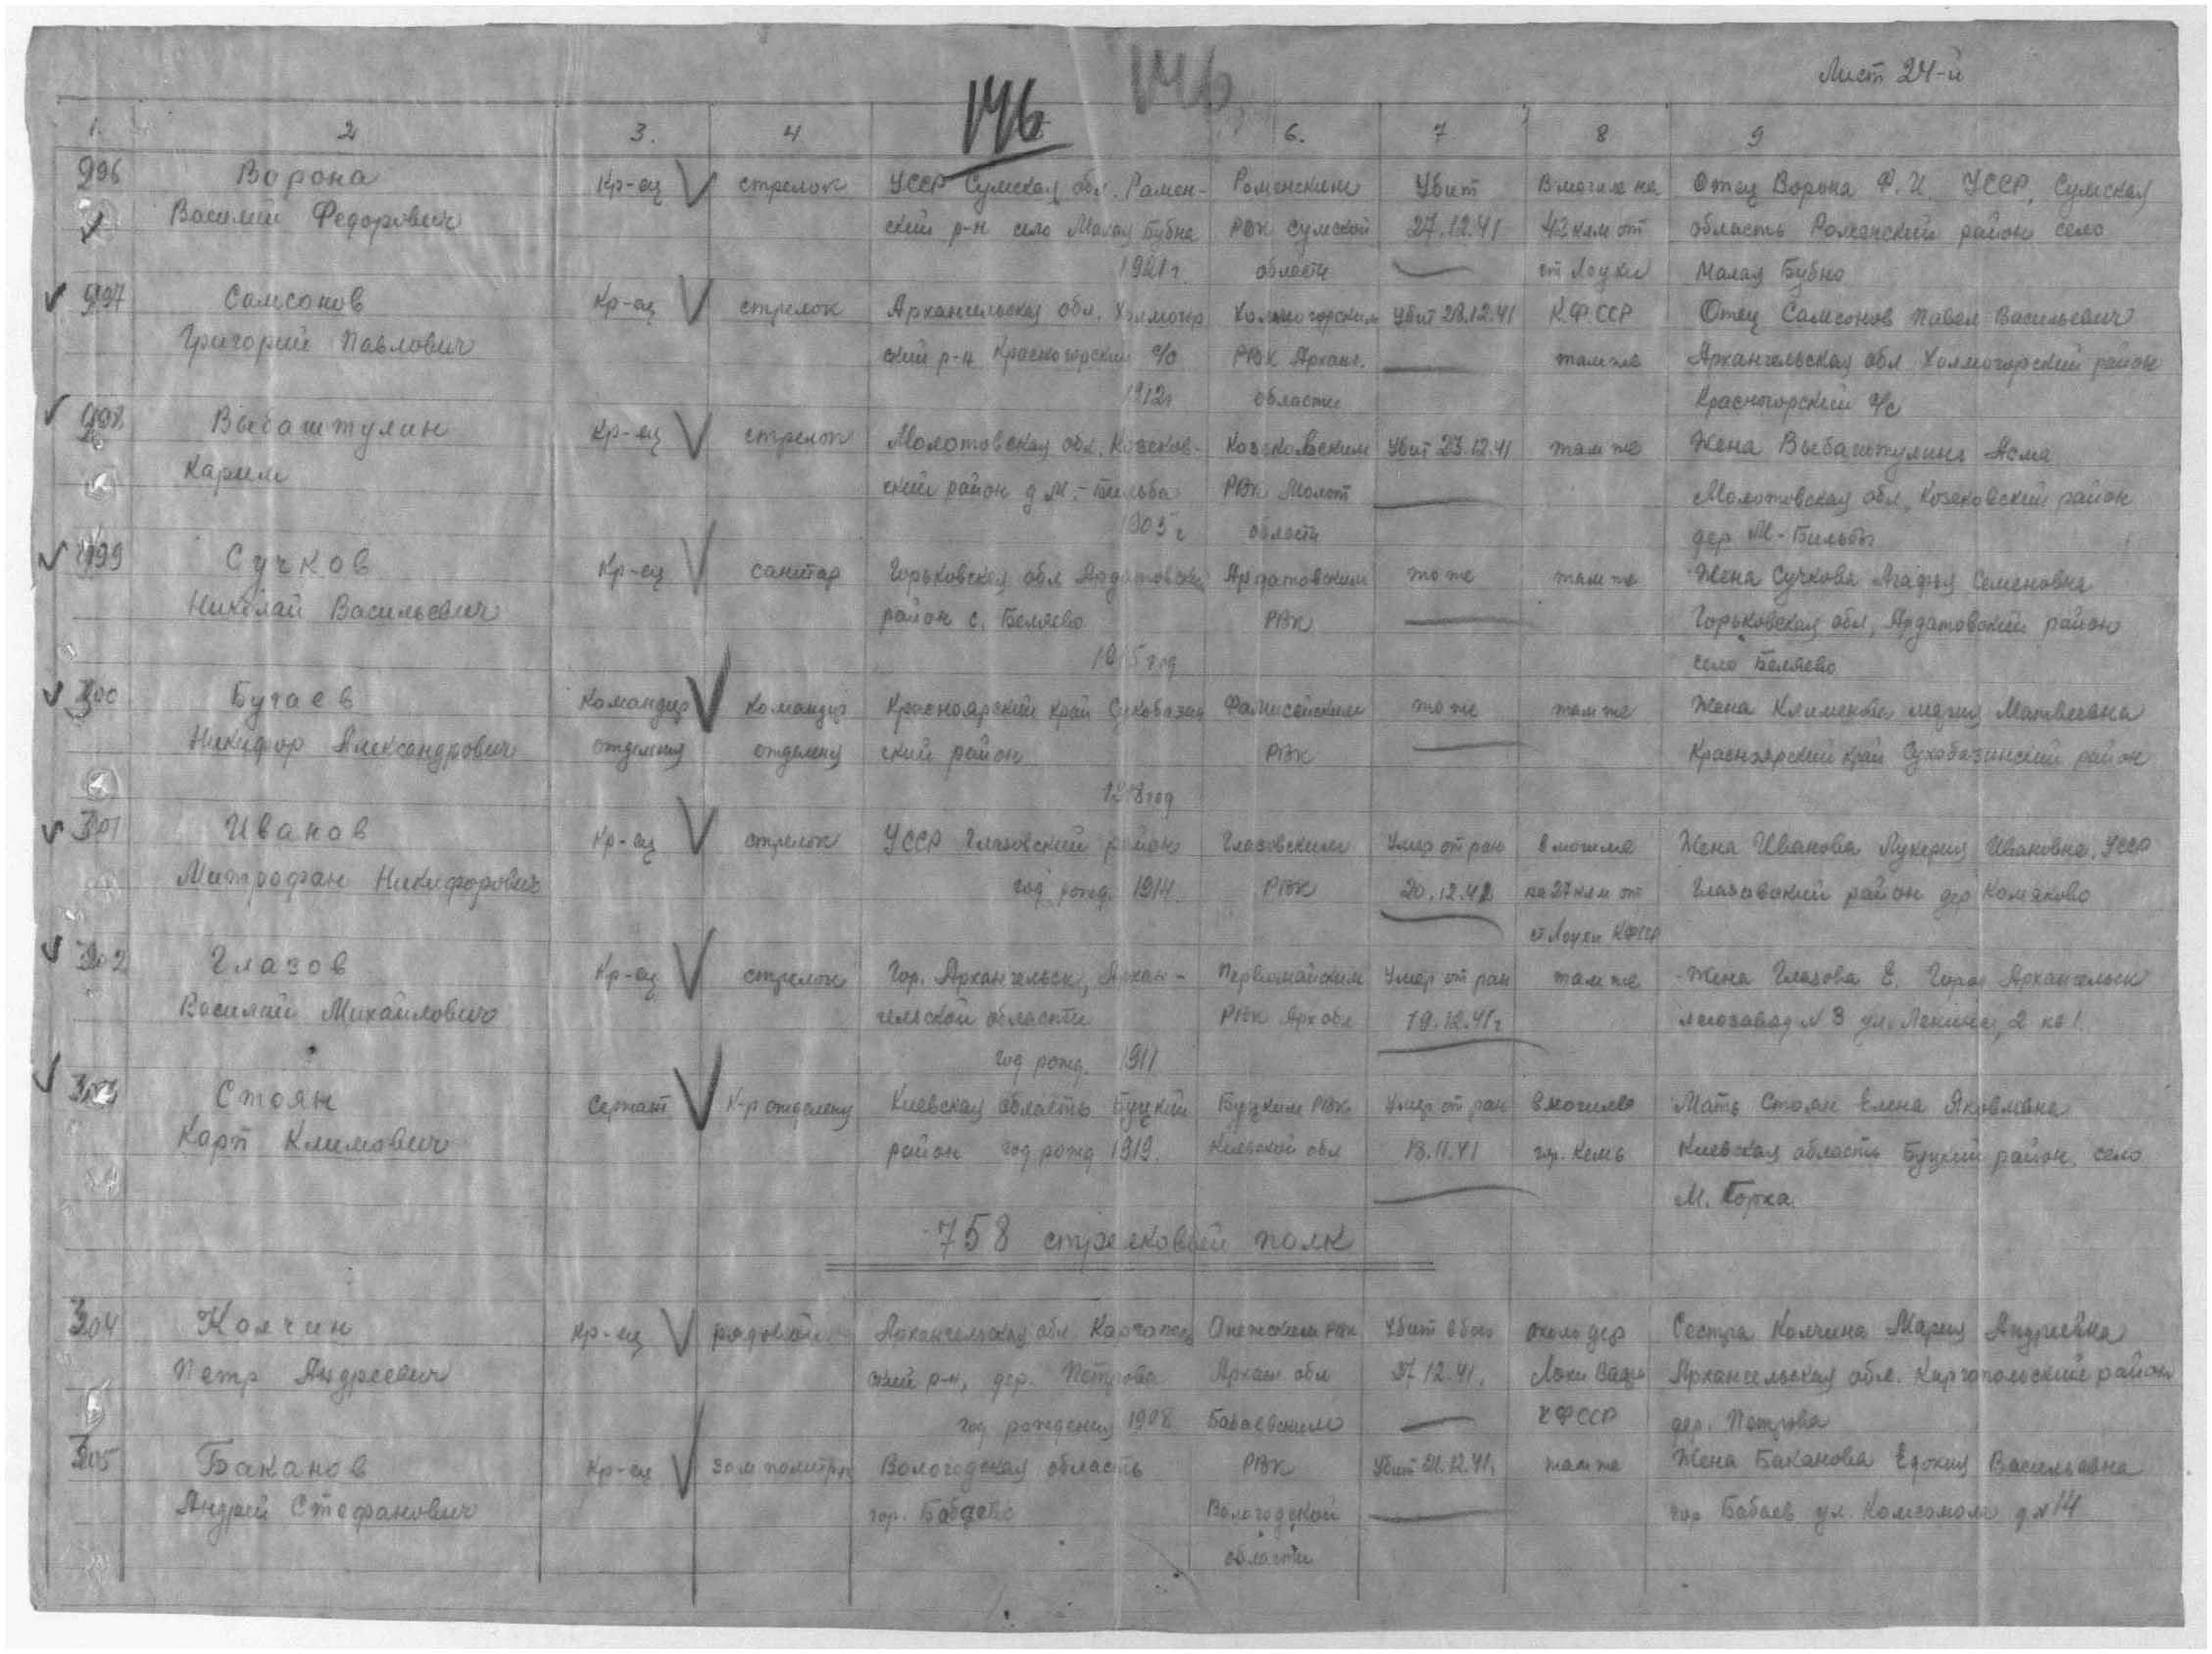 Лист 24-й
146
146
1. 2 3. 4 6. 7 8 9
296 Ворона Кр-ец стрелок УССР Сумская обл. Ромен- Роменским Убит В могиле на Отец Ворона Ф. И. УССР, Сумская
Василий Федорович ский р-н село Малая Бубна РВК Сумской 27.12.41 42 клм от область Роменский район село
1921 г. области ст Лоухи Малая Бубна
297 Самсонов Кр-ец стрелок Архангельская обл. Холмогор Холмогорским Убит 28.12.41 К.Ф.ССР Отец Самсонов Павел Васильевич
Григорий Павлович ский р-н Красногорский с/с РВК Арханг. там же Архангельская обл Холмогорский район
1912 г области Красногорский с/с
298 Выбаштулин Кр-ец стрелок Молотовская обл. Козеков- Козековским Убит 23.12.41 там же Жена Выбаштулина Асма
Карим ский район д М.-Бильба РВК Молот Молотовская обл. Козековский район
1905 г области дер М-Бильба
299 Сучков Кр-ец санитар Горьковская обл Ардатовский Ардатовским то же там же Жена Сучкова Агафья Семеновна
Николай Васильевич район с. Беляево РВК Горьковская обл, Ардатовский район
год село Беляево
300 Бугаев Командир командир Красноярский край РВК то же там же Жена Матвеевна
Никифор Александрович отделения отделения ский район Красноярский край Сухобазинский район
год
301 Иванов Кр-ец стрелок УССР Глазовский район Глазовским Умер от ран в могиле Жена Иванова Лукерия Ивановна, УССР
Митрофан Никифорович год рожд. 1914 РВК 20.12.42 на 27 клм от Глазовский район дер Комяково
ст Лоухи КФССР
302 Глазов Кр-ец стрелок Гор. Архангельск, Архан- Первомайским Умер от ран там же Жена Глазова Е. Город Архангельск
Василий Михайлович гельской области РВК Арх обл 19.12.41 г лесозавод N 3 ул. Ленина, 2 кв 1
год рожд. 1911
303 Стоян Сержант К-р отделения Киевская область Буцкий Буцким РВК Умер от ран в могиле Мать Стоян Елена Яковлевна
Карп Климович район год рожд 1919. Киевской обл 18.11.41 гор. Кемь Киевская область Буцкий район, село
М. Горка
758 стрелковый полк
304 Колчин Кр-ец рядовой Архангельская обл. Каргополь Онежским РВК Убит в бою около дер Сестра Колчина Мария Андреевна
Петр Андреевич ский р-н, дер. ПетроваАрхан. обл 27.12.41. Архангельская обл. Каргопольский район
год рождения 1908 Бабаевским КФССР дер. Петрова
305 Баканов Кр-ец зам политрук Вологодская область РВК Убит 21.12.41. там же Жена Баканова Евдокия Васильевна
Андрей Стефанович гор. Бабаево Вологодской гор Бабаев ул. Комсомол д N 14
области